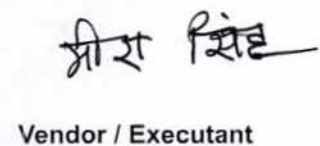 मीरा सिंह
Vendor / Executant